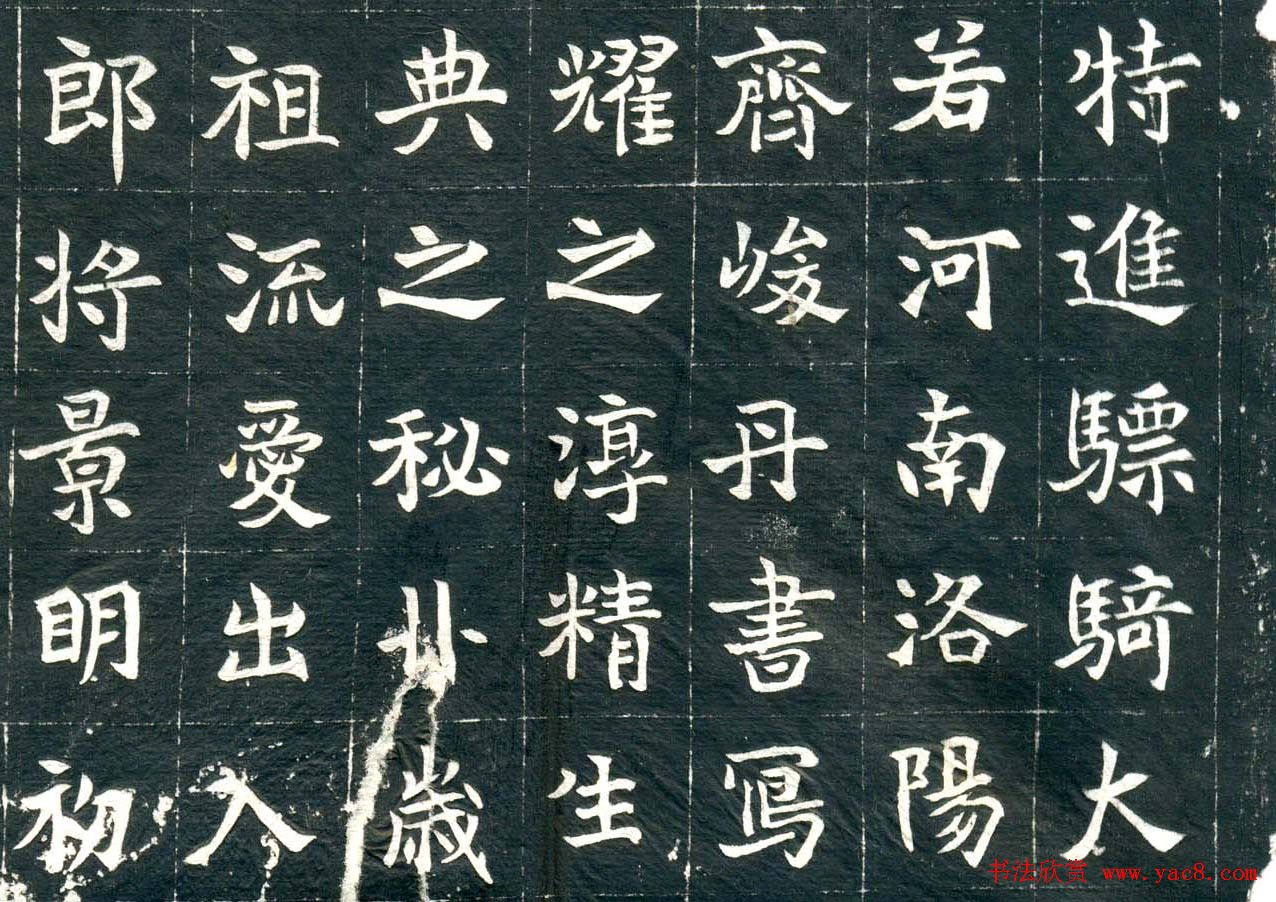 特進驃騎大
若河南洛陽
齊峻丹書寫
耀之淳精生
典之秘 歲
祖流愛出入
郎將景明初
书法欣赏 www.yac8.com